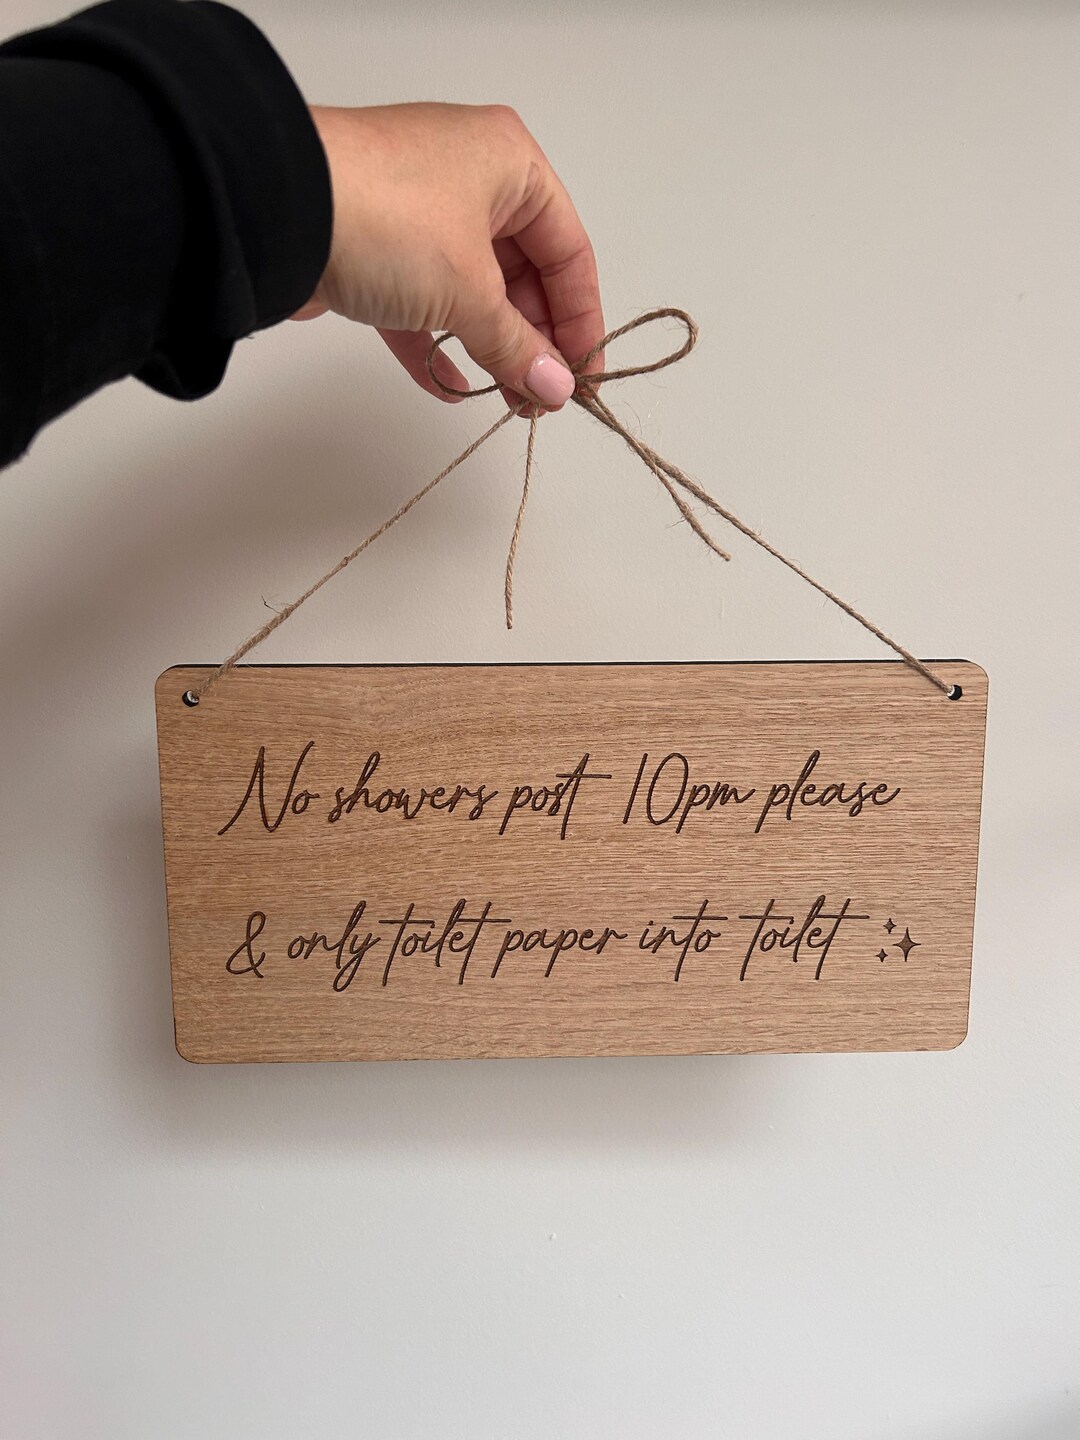 No showers post 10pm please
& only toilet paper into toilet